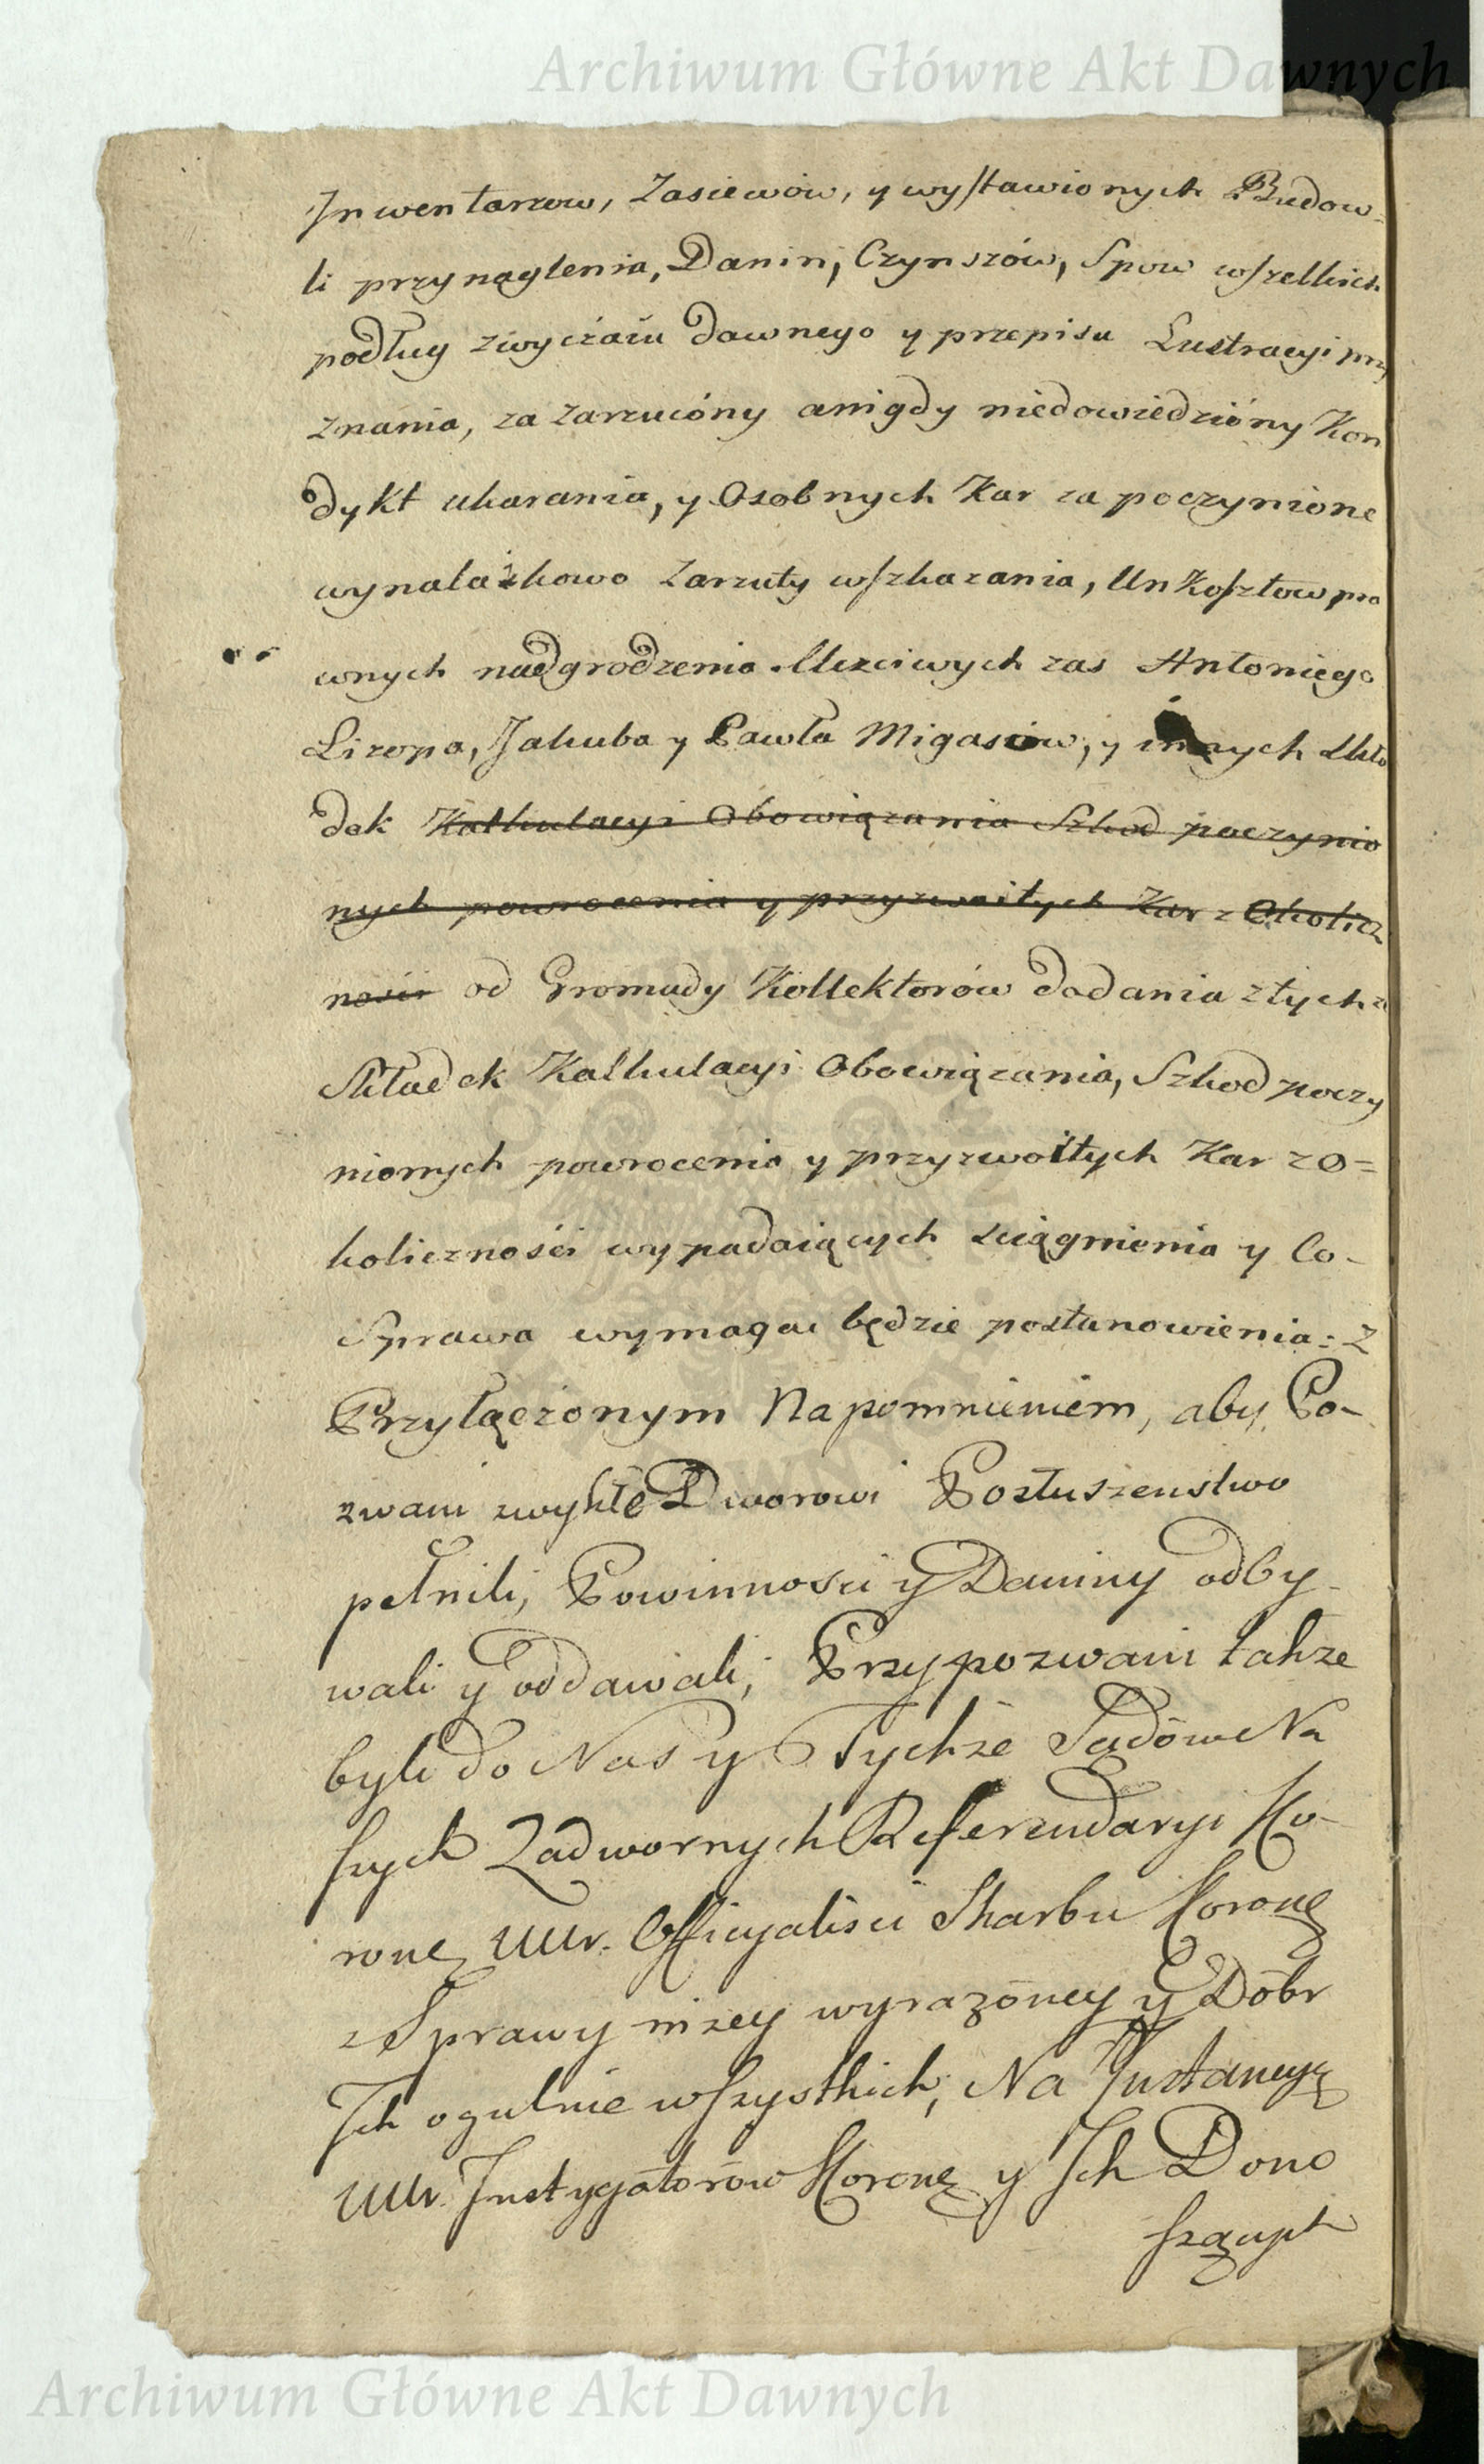 Archiwum Główne Akt Dawnych
Inwentarzow, Zasiewów, y wystawionych Budow-
li przynaglenia, Danin, Czynszów, Spow wszelkich
podług zwyczaiu dawnego y przepisu Lustracyi przy
znania, za zarzucóny anigdy niedowiedzióny Kon
dykt ukarania, y Osobnych Kar za poczynione
wynalazkowo zarzuty wszkazania, Unkosztow pra
wnych nadgrodzenia. Uczciwych zas Antoniego
Lizopa, Jakuba y Pawła Migasiow, y innych Skła
dek Kalkulacyi Obowiązania Szkod poczynio
nych powrocenia y przyzwoitych Kar z Okolicz
nosci od Gromady Kollektorów dodania z tychze
Składek Kalkulacyi Obowiązania, Szkod poczy
nionych powrocenia y przyzwoitych Kar z O=
koliczności wypadaiących sciągnienia y Co-
Sprawa wymagac będzie postanowienia: Z
Przyłączonym Napomnieniem, aby Po-
zwani zwykłe Dworowi Posłuszenstwo
pełnili, Powinnosci y Daniny odby-
wali y oddawali; Przypozwani takze
byli do Nas y Tychże Sądów Na
szych Zadwornych Referendaryi Ko-
ronę UUr. Officyalisci Skarbu Koronę
z Sprawy nizey wyrazóney y Dóbr
Ich ogulnie wszystkich, Na Instancyą
UUr. Instygatorów Koronę y Ich Dono
szących
Archiwum Główne Akt Dawnych